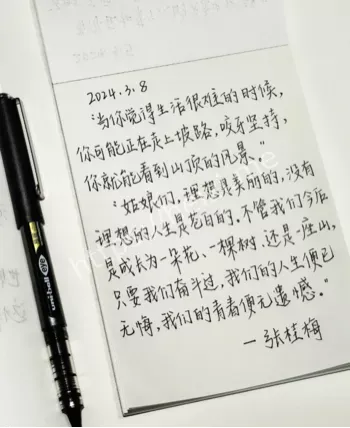 2024.3.8
"当你觉得生活很难的时候,
你可能正在走上坡路,咬牙坚持,
你就能看到山顶的风景。"
"姑娘们,理想是美丽的,没有
理想的人生是苍白的,不管我们今后
是成长为一朵花、一棵树,还是一座山,
只要我们奋斗过,我们的人生便已
无悔,我们的青春便无遗憾。"
—张桂梅
uni-ball